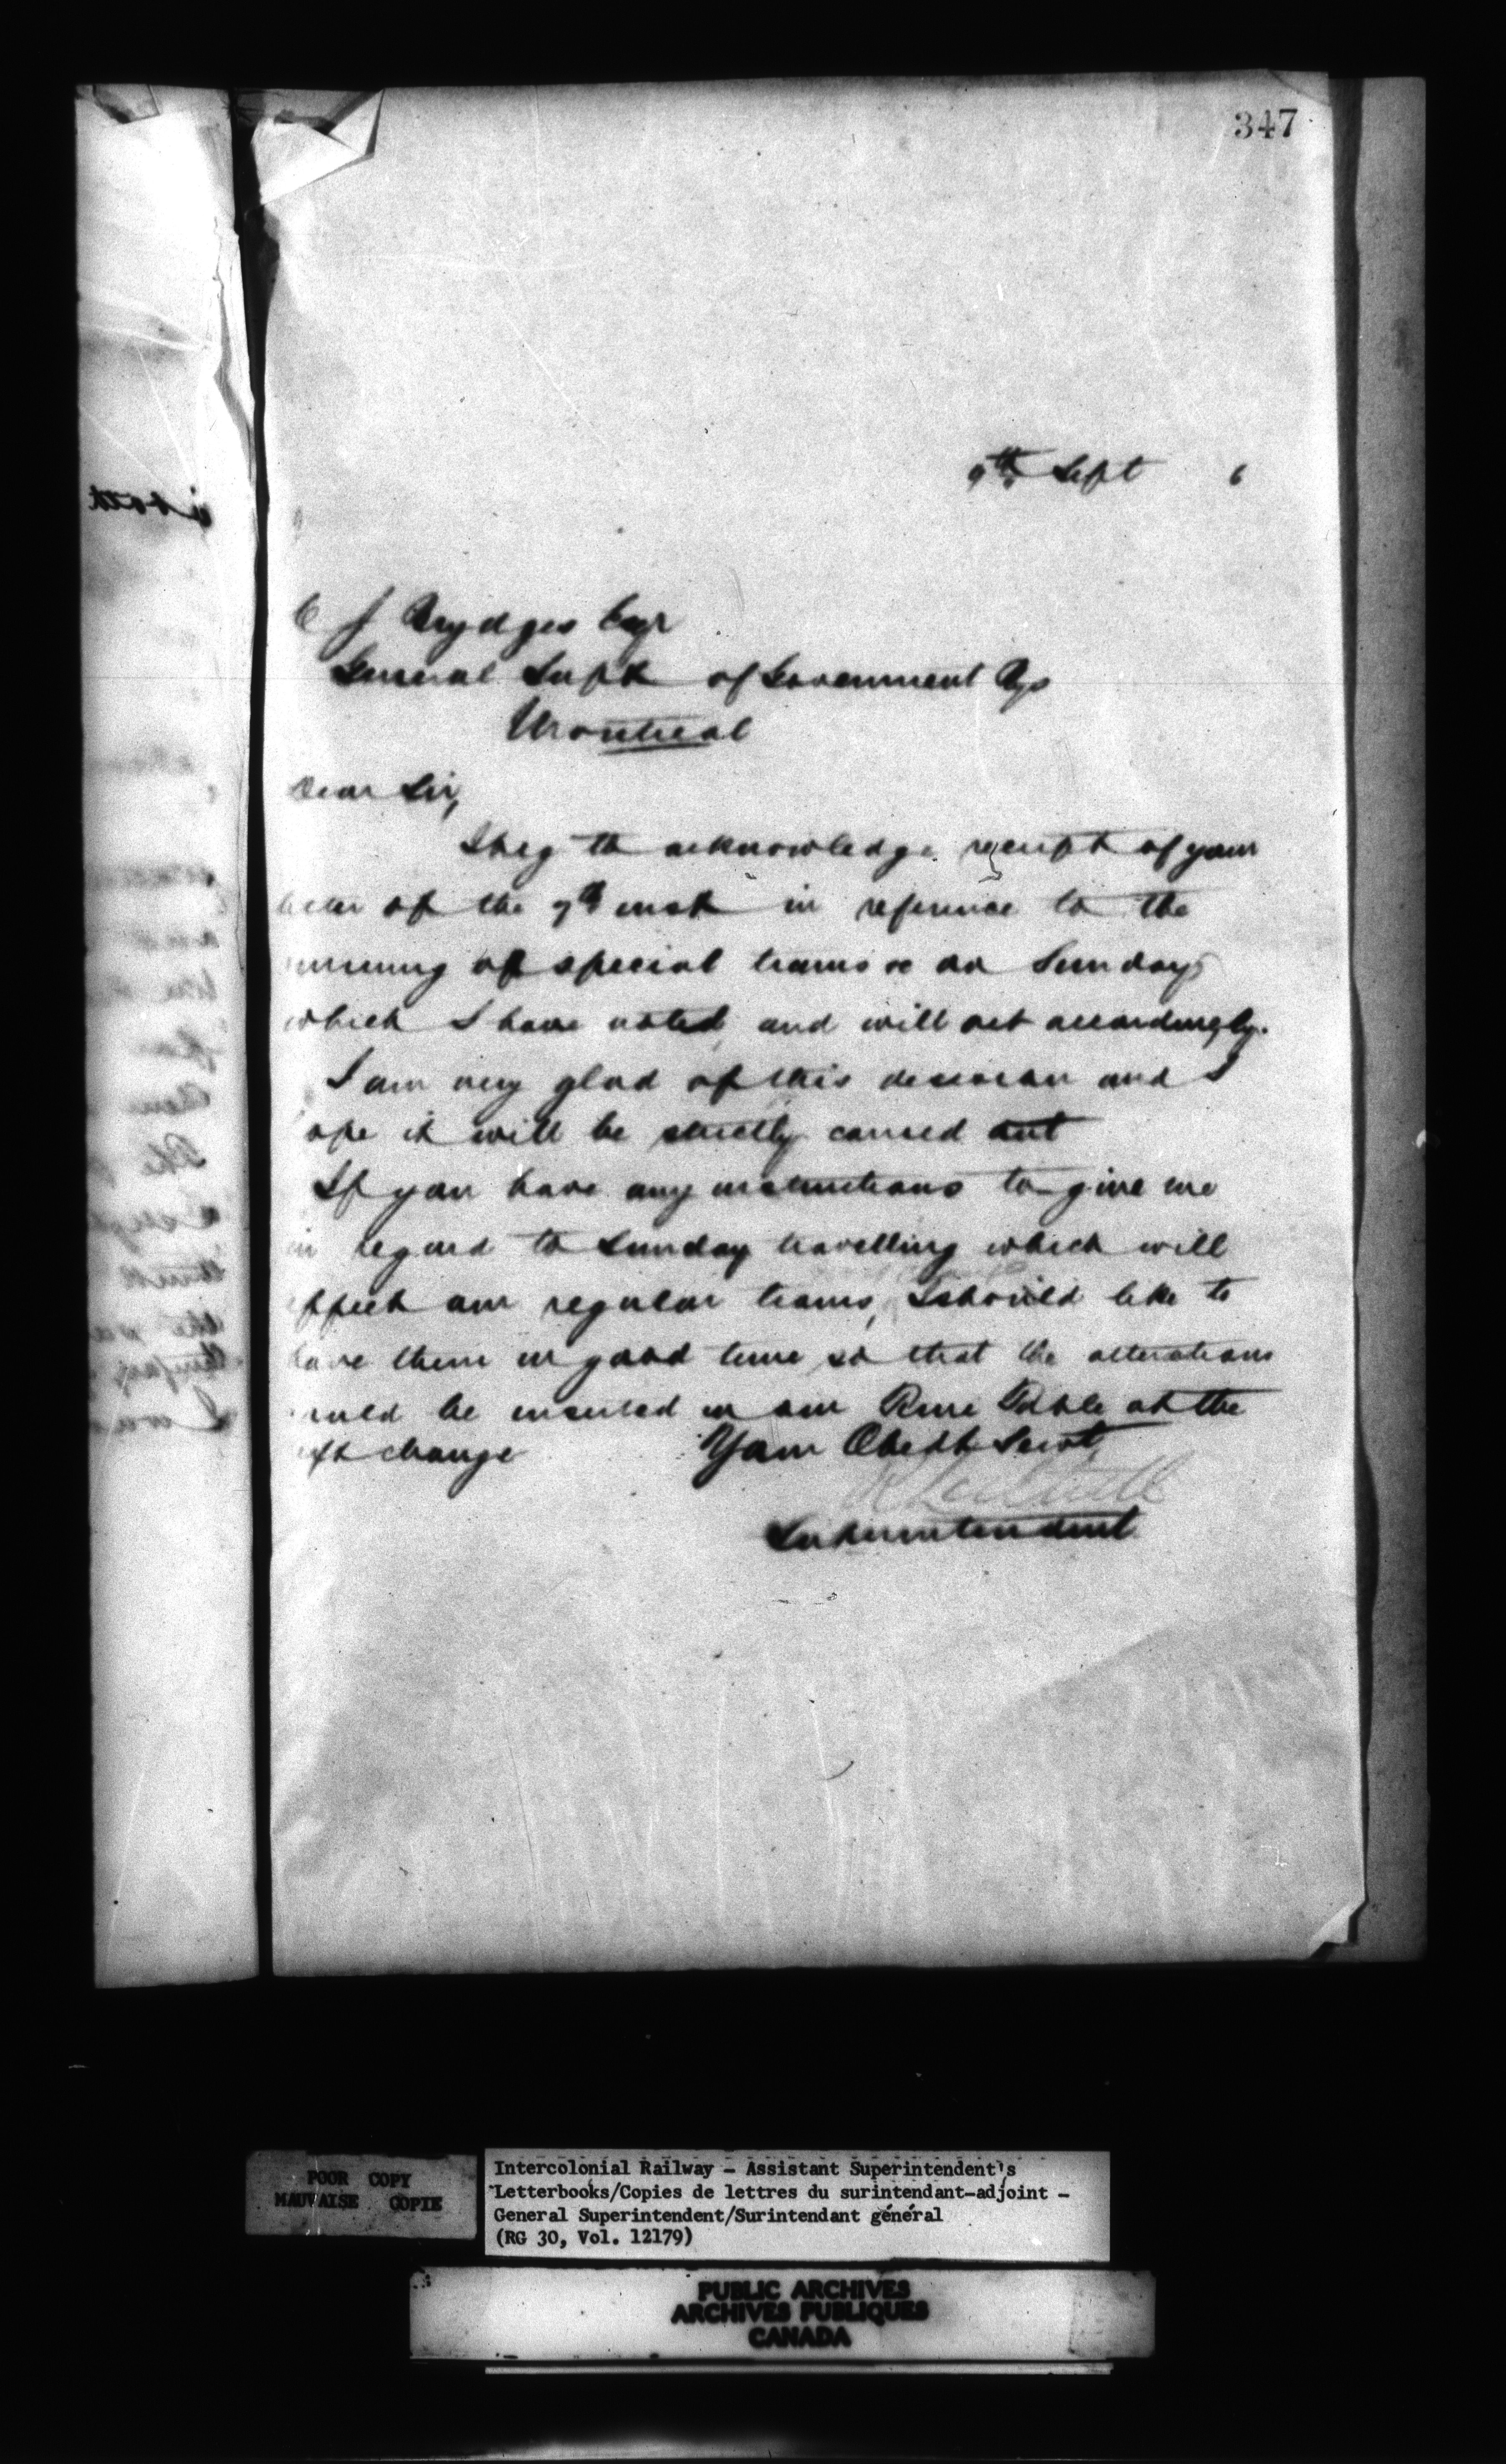 347
9th Sept 6
C J Brydges Esqr
General Supt of Government Rys
Montreal
Dear Sir,
I beg to acknowledge receipt of your
of the 7th inst in reference to the
running of special trains &c on Sundays
which I have noted, and will act accordingly.
I am very glad of this decision and I
ope it will be strictly carried out
If you have any instructions to give me
in regard to Sunday travelling which will
effect our regular trains, I should like to
have them in good time so that the alterations
could be inserted in our Time Table at the
ext change
Your Obedt Servt
Superintendent
POOR COPY
MAUVAISE COPIE
Intercolonial Railway - Assistant Superintendent's
Letterbooks/Copies de lettres du surintendant-adjoint -
General Superintendent/Surintendant général
(RG 30, Vol. 12179)
PUBLIC ARCHIVES
ARCHIVES PUBLIQUES
CANADA